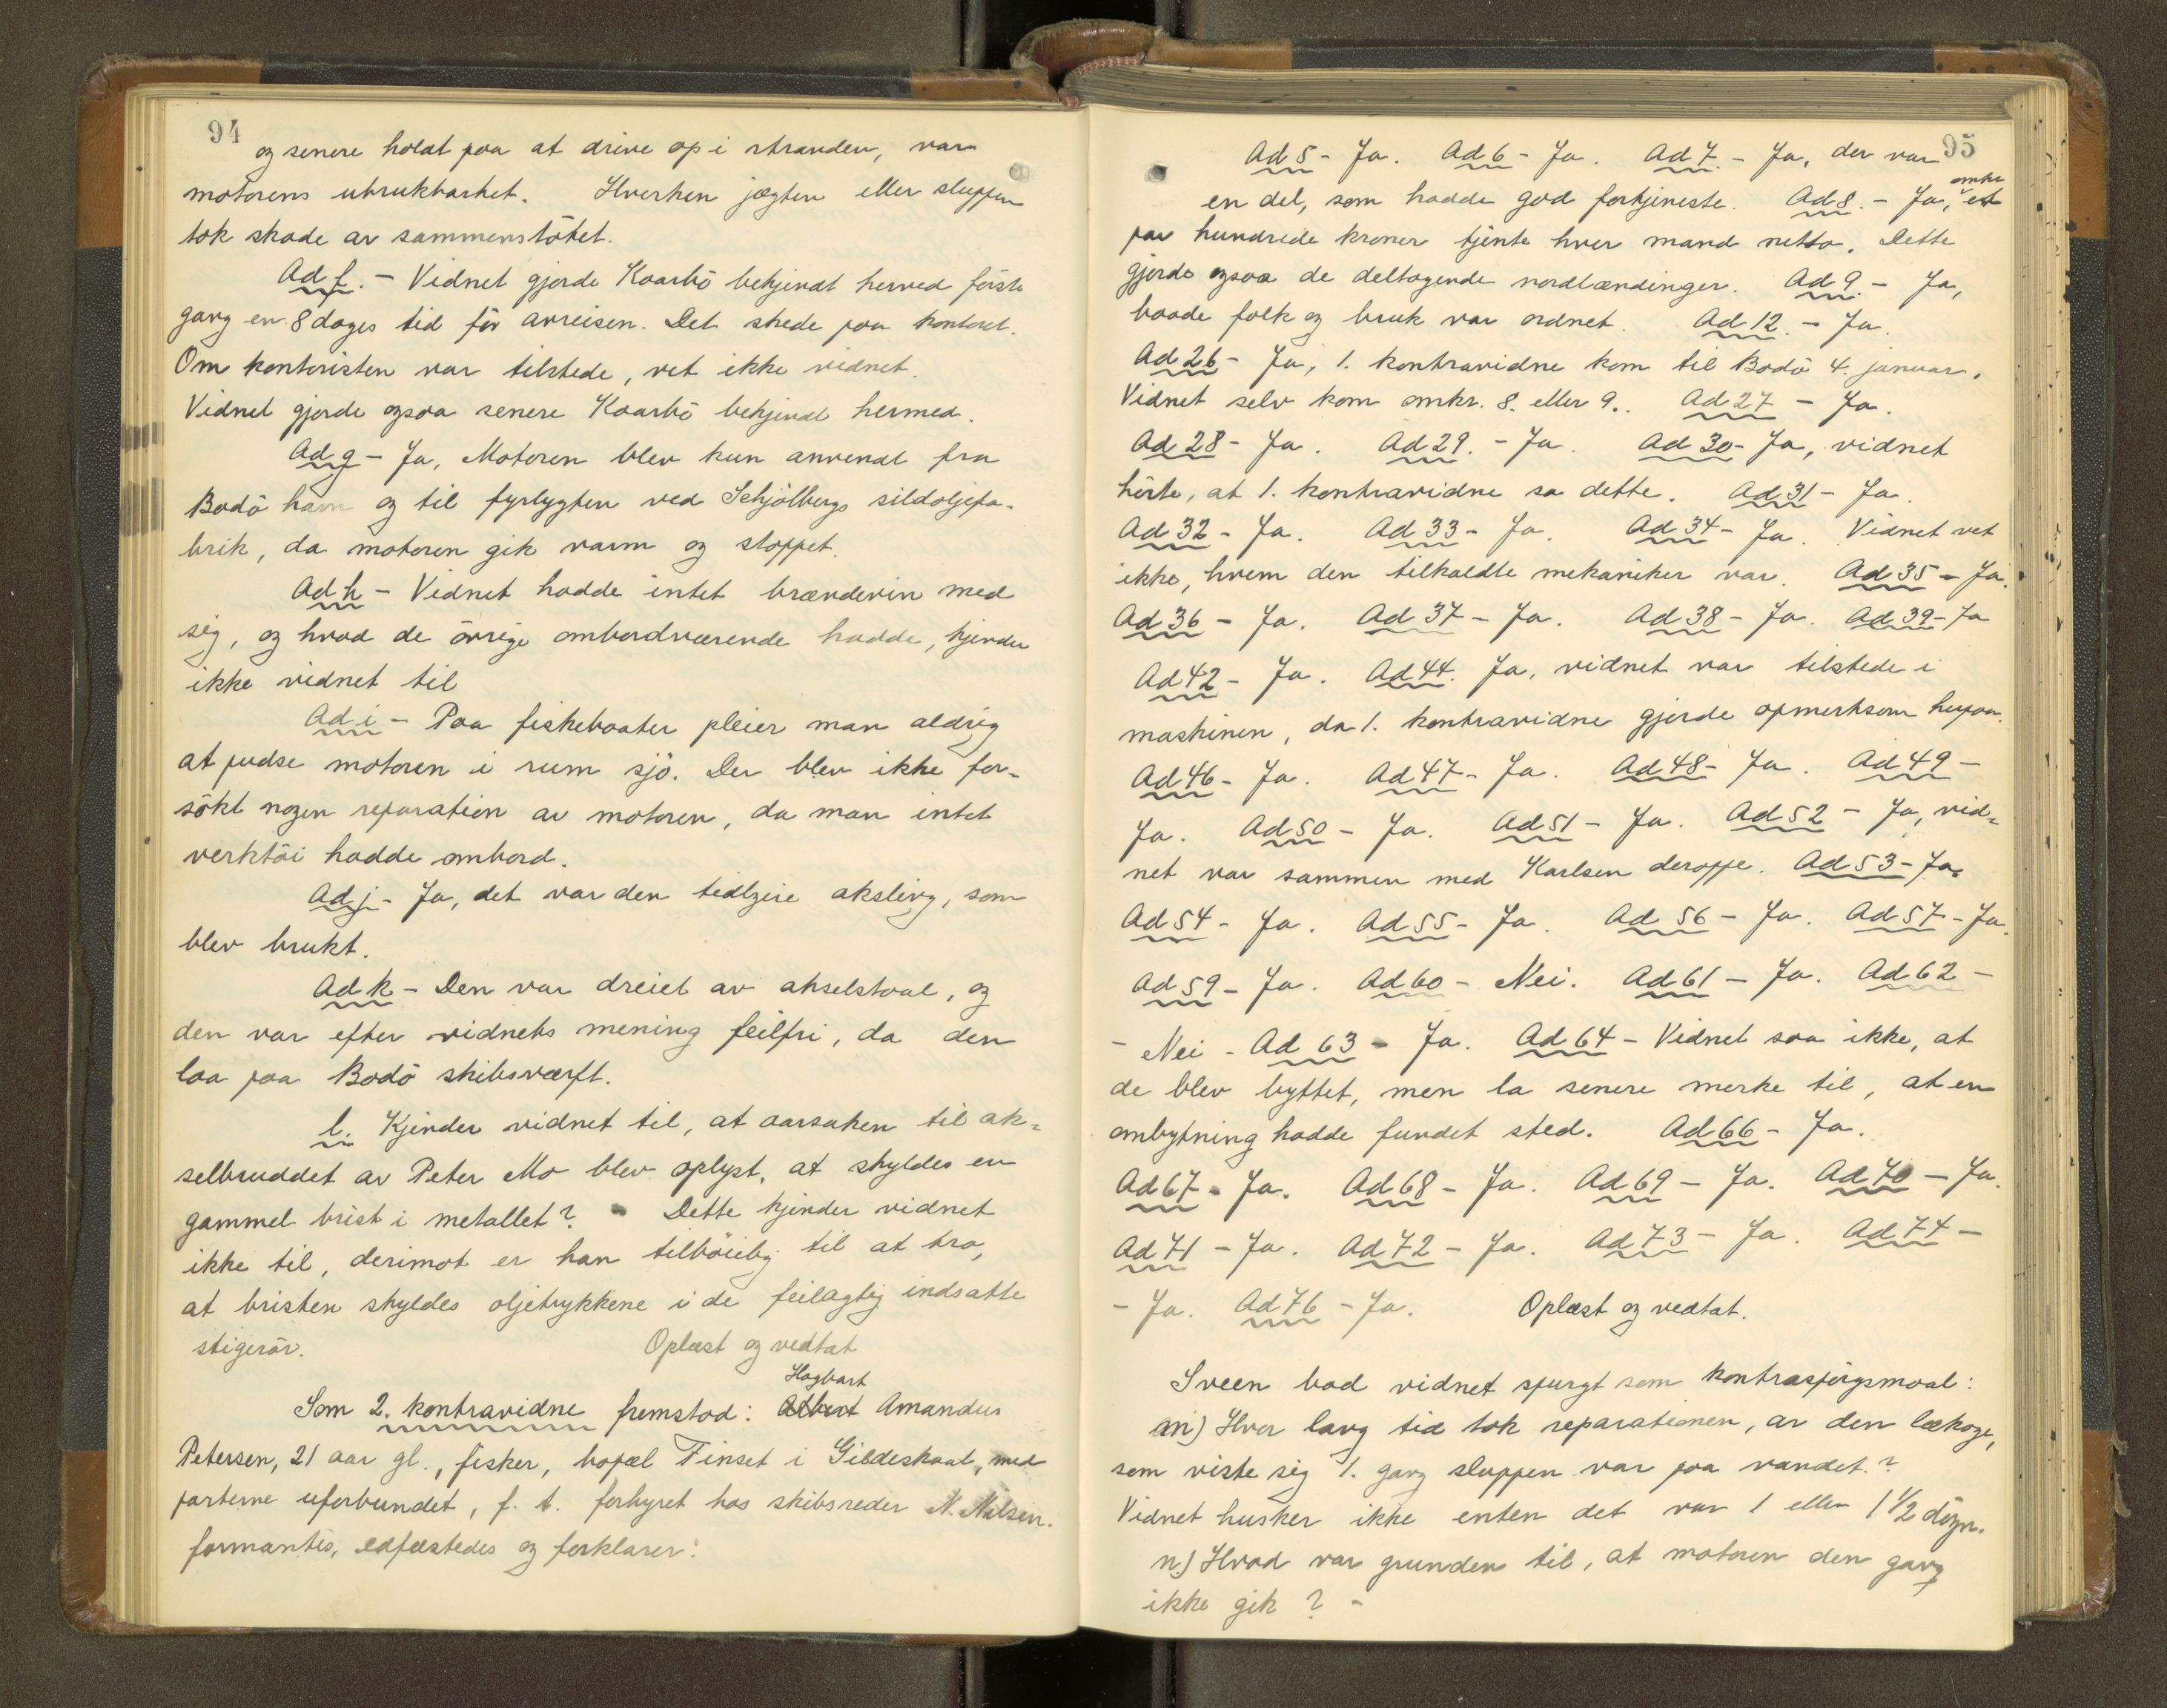 94
og senere holdt paa at drive op i stranden, var
motorens ubrukbarhet. Hverken jægten eller sluppen
tok skade av sammenstötet.
Ad f. - Vidnet gjorde Kaarbö bekjendt herved förste
gang en 8 dages tid för avreisen. Det skede paa kontoret.
Om kontoristen var tilstede, vet ikke vidnet.
Vidnet gjorde ogsaa senere Kaarbö bekjendt hermed.
Ad g - Ja, Motoren blev kun anvendt fra
Bodö havn og til fyrlygten ved Schjölbergs sildoljefa-
brik, da motoren gik varm og stoppet.
Ad h - Vidnet hadde intet brændevin med
sig, og hvad de övrige ombordværende hadde, kjender
ikke vidnet til
Ad i - Paa fiskebaater pleier man aldrig
at pudse motoren i rum sjö. Der blev ikke for-
sökt nogen reparation av motoren, da man intet
verktöi hadde ombord.
Ad j - Ja, det var den tidligere aksling, som
blev brukt.
Ad k - Den var dreiet av akselstaal, og
den var efter vidnets mening feilfri, da den
laa paa Bodö skibsværft.
l. Kjender vidnet til, at aarsaken til ak-
selbruddet av Peter Mo blev oplyst, at skyldes en
gammel brist i metallet? - Dette kjender vidnet
ikke til, derimot er han tilböielig til at tro,
at bristen skyldes oljetrykkene i de feilagtig indsatte
stigerör. Oplæst og vedtat
Hagbart
Som 2. kontravidne fremstod: Albert Amandus
Petersen, 21 aar gl., fisker, bopæl Finset i Gildeskaal, med
parterne uforbundet, f. t. forhyret hos skibsreder N. Nilsen.
formantes, edfæstedes og forklarer:
95
Ad 5 - Ja. Ad 6 - Ja. Ad 7. - Ja, der var
omkr
en del, som hadde god fortjeneste. Ad 8. - Ja, et
par hundrede kroner tjente hver mand netto. Dette
gjorde ogsaa de deltagende nordlændinger. Ad 9 - Ja,
baade folk og bruk var ordnet. Ad 12. - Ja.
Ad 26 - Ja, 1. kontravidne kom til Bodö 4. januar.
Vidnet selv kom omkr. 8. eller 9.. Ad 27 - Ja.
Ad 28 - Ja. Ad 29. - Ja. Ad 30 - Ja, vidnet
hörte, at 1. kontravidne sa dette. Ad 31 - Ja.
Ad 32 - Ja. Ad 33 - Ja. Ad 34 - Ja. Vidnet vet
ikke, hvem den tilkaldte mekaniker var. Ad 35 - Ja.
Ad 36 - Ja. Ad 37 - Ja. Ad 38 - Ja. Ad 39 - Ja
Ad 42 - Ja. Ad 44. Ja, vidnet var tilstede i
maskinen, da 1. kontravidne gjorde opmerksom herpaa.
Ad 46 - Ja. Ad 47 - Ja. Ad 48 - Ja. Ad 49 -
Ja. Ad 50 - Ja. Ad 51 - Ja. Ad 52 - Ja, vid-
net var sammen med Karlsen deroppe. Ad 53 - Ja.
Ad 54 - Ja. Ad 55 - Ja. Ad 56 - Ja. Ad 57 - Ja.
Ad 59 - Ja. Ad 60 - Nei. Ad 61 - Ja. Ad 62 -
- Nei - Ad 63 - Ja. Ad 64 - Vidnet saa ikke, at
de blev byttet, men la senere merke til, at en
ombytning hadde fundet sted. Ad 66 - Ja.
Ad 67 - Ja. Ad 68 - Ja. Ad 69 - Ja. Ad 70 - Ja.
Ad 71 - Ja. Ad 72 - Ja. Ad 73 - Ja. Ad 74 -
- Ja. Ad 76 - Ja. Oplæst og vedtat.
Sveen bad vidnet spurgt som kontraspörgsmaal:
m) Hvor lang tid tok reparationen, av den lækage,
som viste sig 1. gang sluppen var paa vandet.?
Vidnet husker ikke enten det var 1 eller 1 1/2 dögn.
n.) Hvad var grunden til, at motoren den gang
ikke gik? -